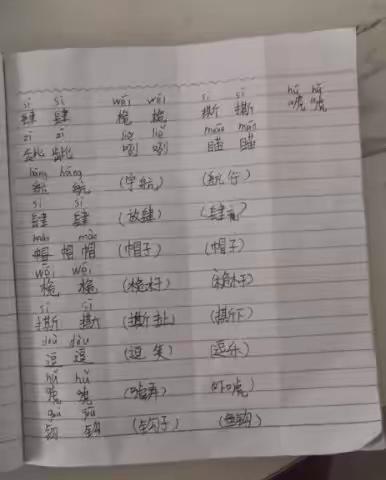 sì sì wéi wéi sī sī hǔ hǔ
肆 肆 桅 桅 撕 撕 唬 唬
zī zī liē liē māo māo
龇 龇 咧 咧 瞄 瞄
háng háng
航 航 (宇航) (航行)
sì sì
肆 肆 (放肆)
mào mào
帽 帽 帽 (帽子) (帽子)
wéi wéi
桅 桅 (桅杆) (桅杆)
sī sī
撕 撕 (撕扯) (撕下)
dòu dòu
逗 逗 (逗笑) (逗乐)
hǔ hǔ
唬 唬 (吓唬)
gōu gōu
钩 钩 (钩子) (鱼钩)